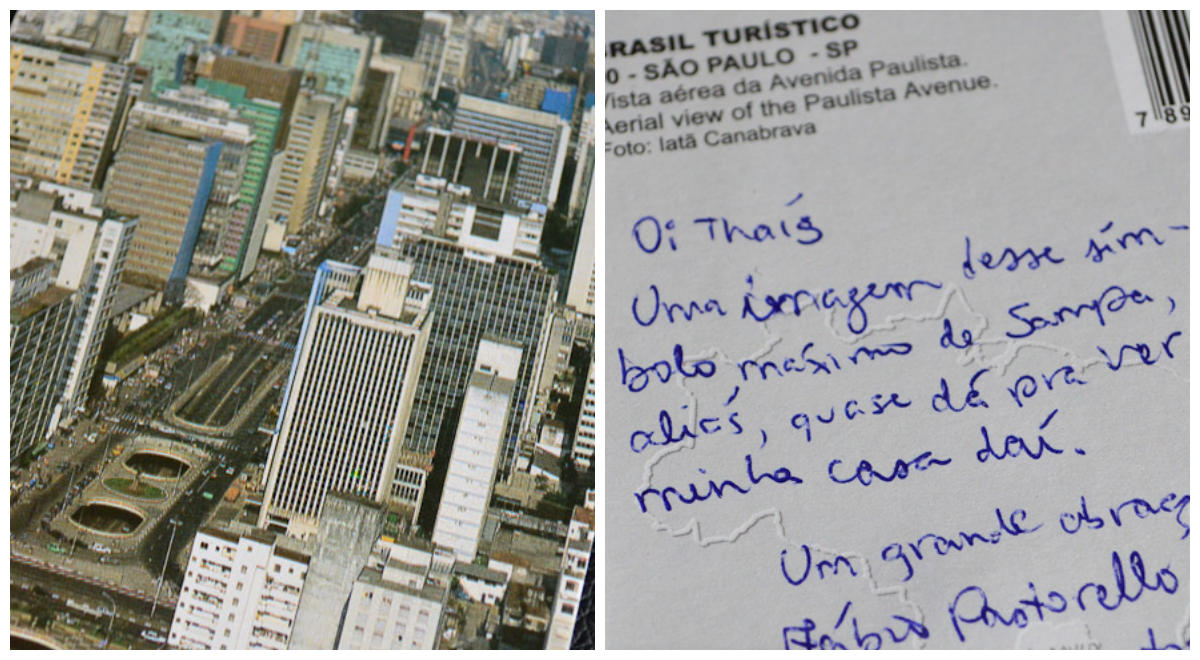 BRASIL TURÍSTICO
0 - SÃO PAULO - SP
Vista aérea da Avenida Paulista.
Aerial view of the Paulista Avenue.
Foto: Iatã Canabrava
7 89
Oi Thaís
Uma imagem desse sím-
bolo máximo de Sampa,
aliás, quase dá pra ver
minha casa daí.
Um grande abraç
Fábio Pastorello